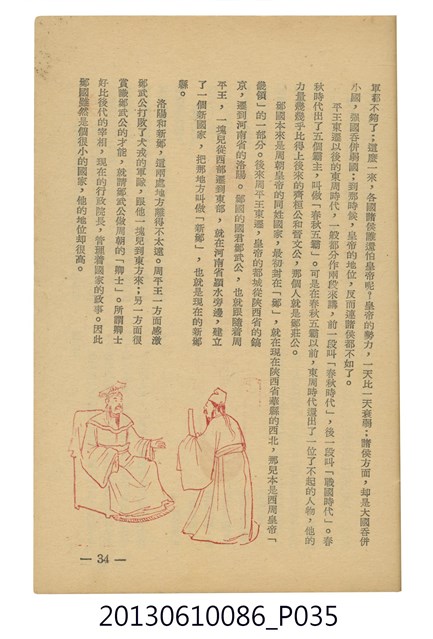 軍都不夠了；這麼一來，各國諸侯誰還怕皇帝呢？皇帝的勢力，一天比一天衰弱；諸侯方面，却是大國吞併
小國，强國吞併弱國；到那時候，皇帝的地位，反而連諸侯都不如了。
平王東遷以後的東周時代，一般都分作兩段來講，前一段叫「春秋時代」，後一段叫「戰國時代」。春
秋時代出了五個霸主，叫做「春秋五霸」。可是在春秋五霸以前，東周時代還出了一位了不起的人物，他的
力量幾幾乎比得上後來的齊桓公和晉文公，那個人就是鄭莊公。
鄭國本來是周朝皇帝的同姓國家，最初封在「鄭」，就在現在陝西省華縣的西北，那兒本是西周皇帝「
畿領」的一部分。後來周平王東遷，皇帝的都城從陝西省的鎬
京，遷到河南省的洛陽。鄭國的國君鄭武公，也就跟隨着周
平王，一塊兒從西部遷到東部，就在河南省潁水旁邊，建立
了一個新國家，把那地方叫做「新鄭」，也就是現在的新鄭
縣。
洛陽和新鄭，這兩處地方離得不太遠。周平王一方面感激
鄭武公打敗了犬戎的軍隊，跟他一塊兒到東方來；另一方面很
賞識鄭武公的才能，就請鄭武公做周朝的「卿士」。所謂卿士
好比後代的宰相，現在的行政院長，管理着國家的政事。因此
鄭國雖然是個很小的國家，他的地位却很高。
— 34 —
20130610086_P035